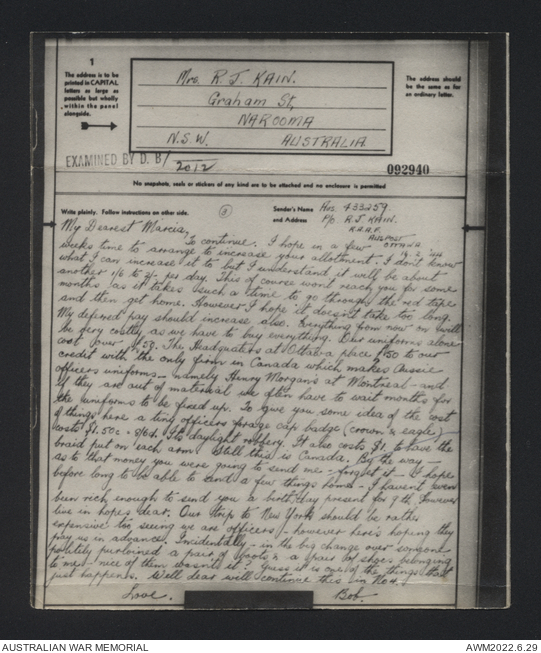 1
The address is to be
printed in CAPITAL
letters as large as
possible but wholly
within the panel
alongside.
Mrs. R. J. KAIN.
Graham St,
NAROOMA
N.S.W. AUSTRALIA
The address should
be the same as for
an ordinary letter.
EXAMINED BY D. B/
2012
092940
No snapshots, seals or stickers of any kind are to be attached and no enclosure is permitted
Write plainly. Follow instructions on other side.
③
Sender's Name Aus 433259.
and Address P/o R.J KAIN.
R.A.A.F.
AUSPOST
OTTAWA
My Dearest Marcia,
To continue. I hope in a few
weeks time to arrange to increase your allotment. I don't know
what I can increase it to but I understand it will be about
another 1/6 to 2/- per day. This of course wont reach you for some
months as it takes such a time to go through the red tape
and then get home. However I hope it doesn't take too long.
My deferred pay should increase also. Everything from now on will
be very costly as we have to buy everything. Our uniforms alone
cost over £53. The Headquaters at Ottawa place $150 to our
credit with the only firm in Canada which makes Aussie
officers uniforms - namely Henry Morgans at Montreal - and
if they are out of material we often have to wait months for
the uniforms to be fixed up. To give you some idea of the cost
of things here a tiny officers forage cap badge (crown & eagle)
costs $1.50c = 8/6d. Its daylight robbery. It also costs $1. to have the
braid put on each arm. Still this is Canada. By the way -
as to that money you were going to send me - forget it - I hope
before long to be able to send a few things home - I havent even
been rich enough to send you a birthday present for 9th. However
live in hopes dear. Our trip to New York should be rather
expensive too, seeing we are officers - however here's hoping they
pay us in advance. Incidentally - in the big change over someone
politely purloined a pair of boots & a pair of shoes belonging
to me - nice of them wasn't it? Guess it is one of the things that
just happens. Well dear will continue this in No 4.
Love. Bob.
AUSTRALIAN WAR MEMORIAL
AWM2022.6.29